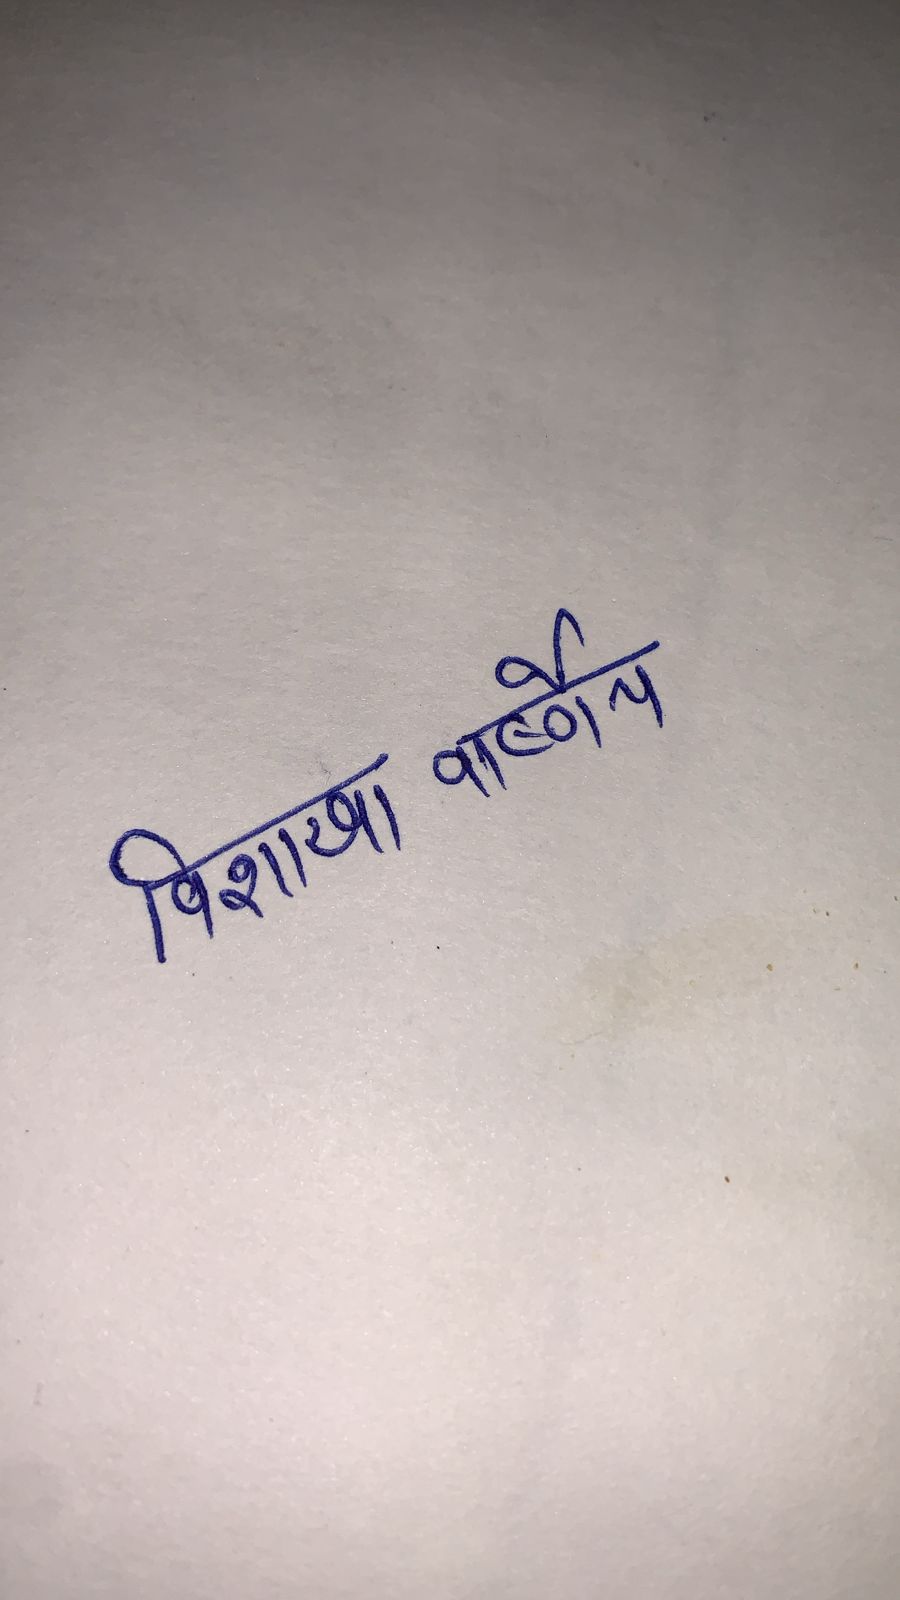 विशाखा वार्ष्णेय